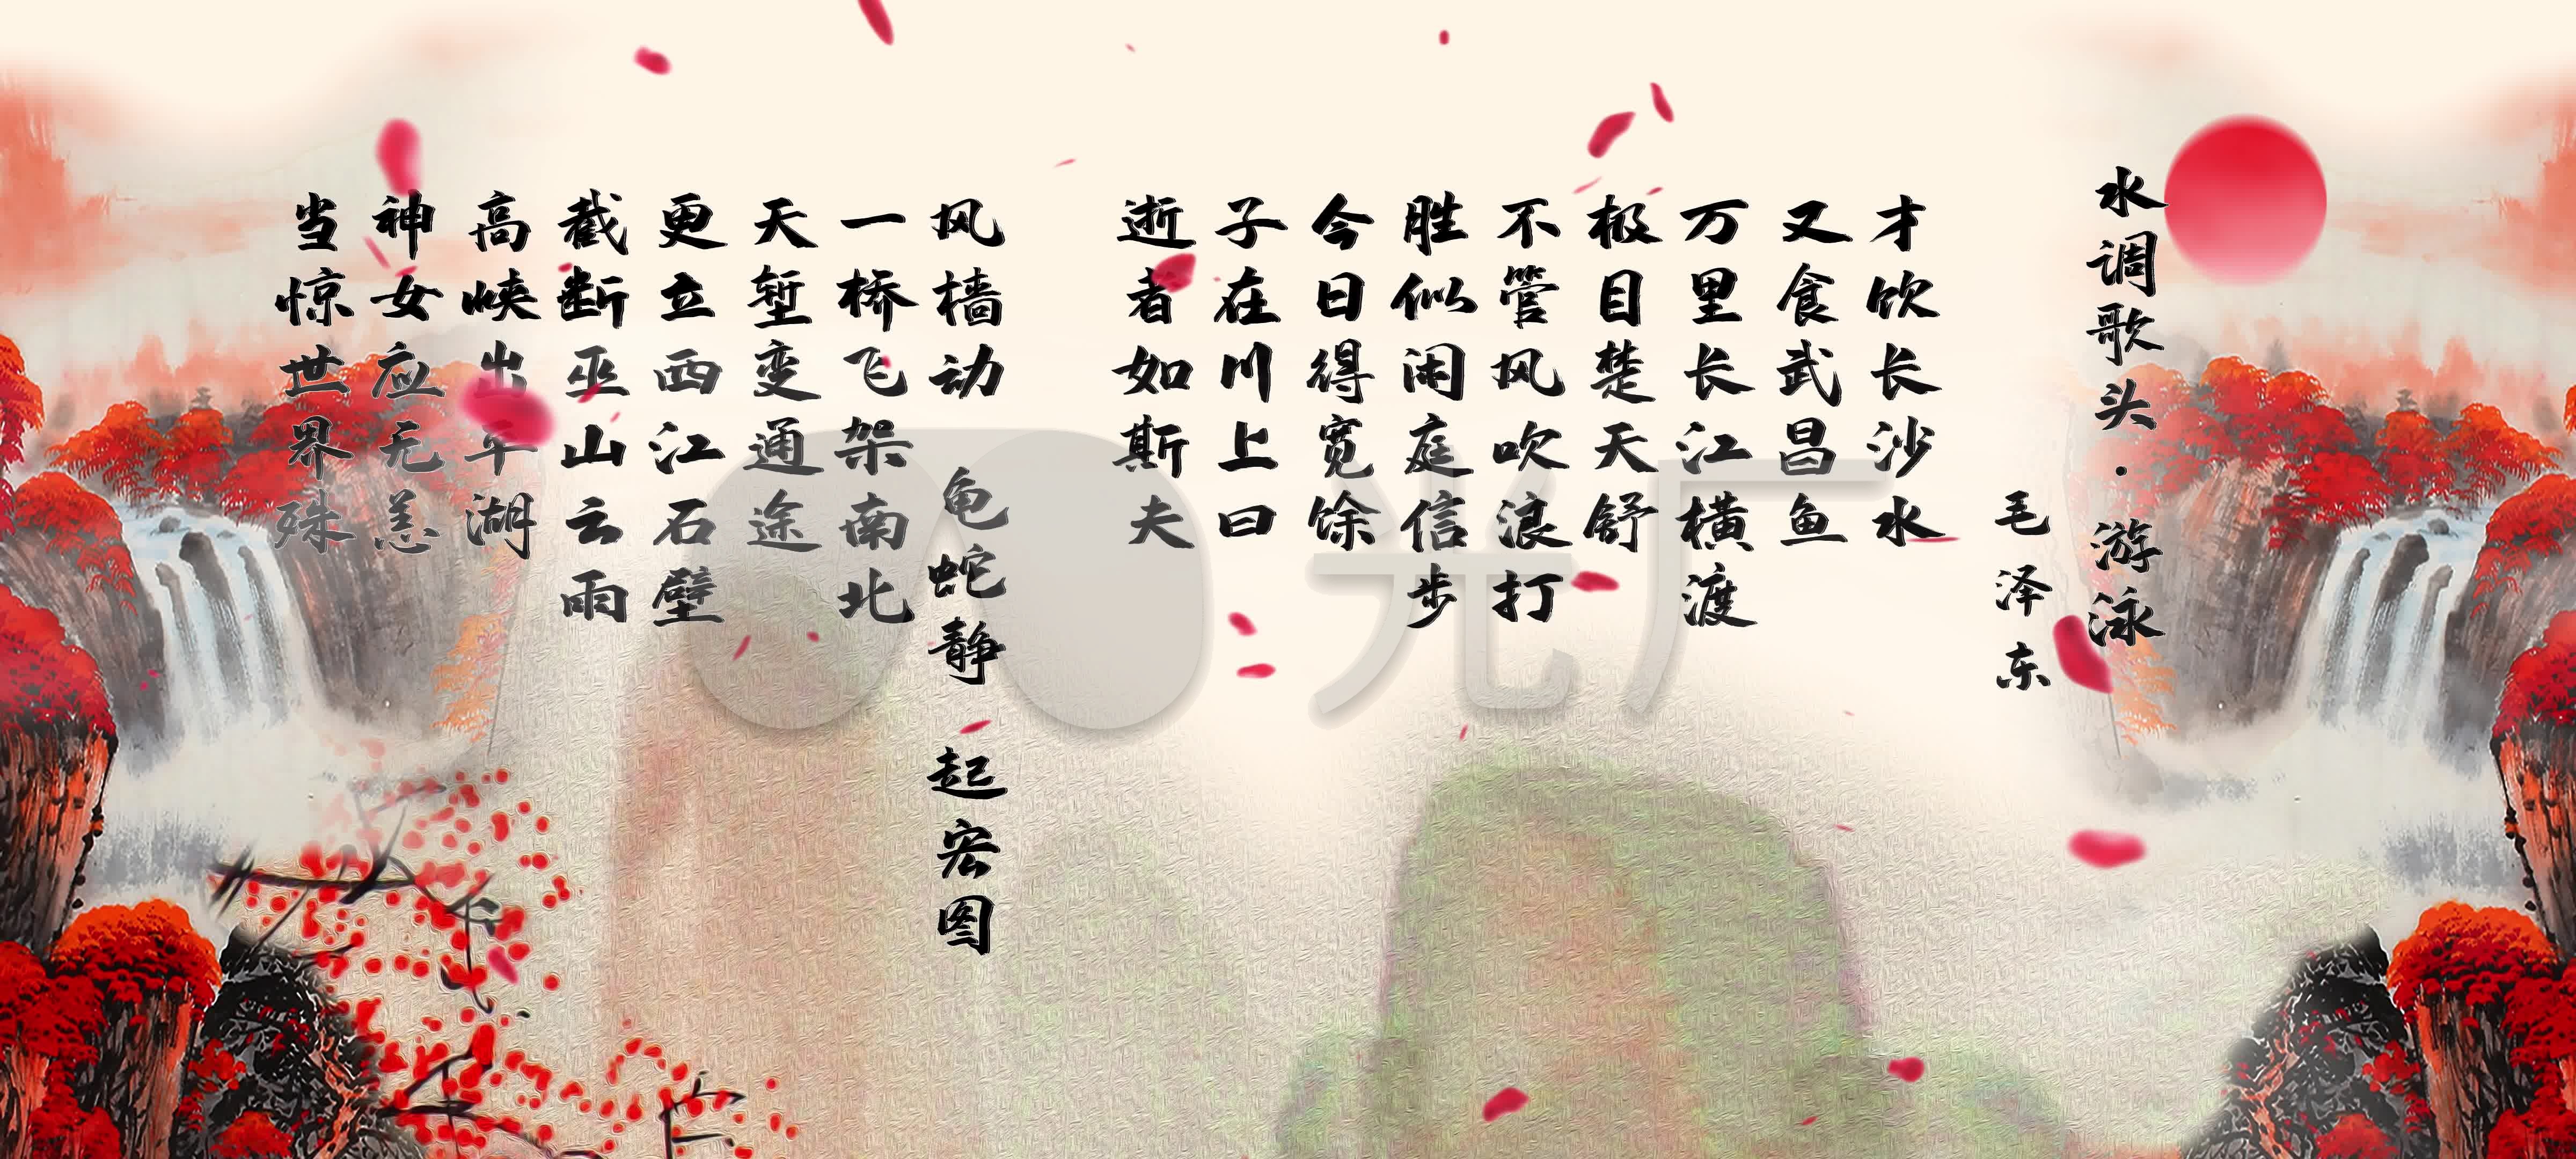 水调歌头·游泳
毛泽东
才饮长沙水
又食武昌鱼
万里长江横渡
极目楚天舒
不管风吹浪打
胜似闲庭信步
今日得宽馀
子在川上曰
逝者如斯夫
风樯动 龟蛇静 起宏图
一桥飞架南北
天堑变通途
更立西江石壁
截断巫山云雨
高峡出平湖
神女应无恙
当惊世界殊
光厂